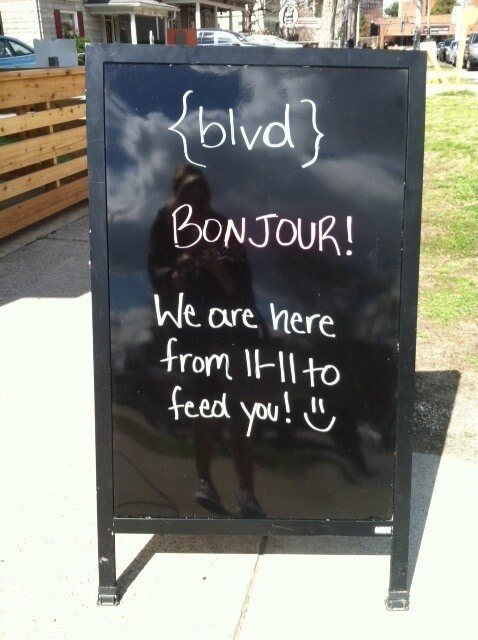 {blvd}
BONJOUR!
We are here
from 11-11 to
feed you! =)